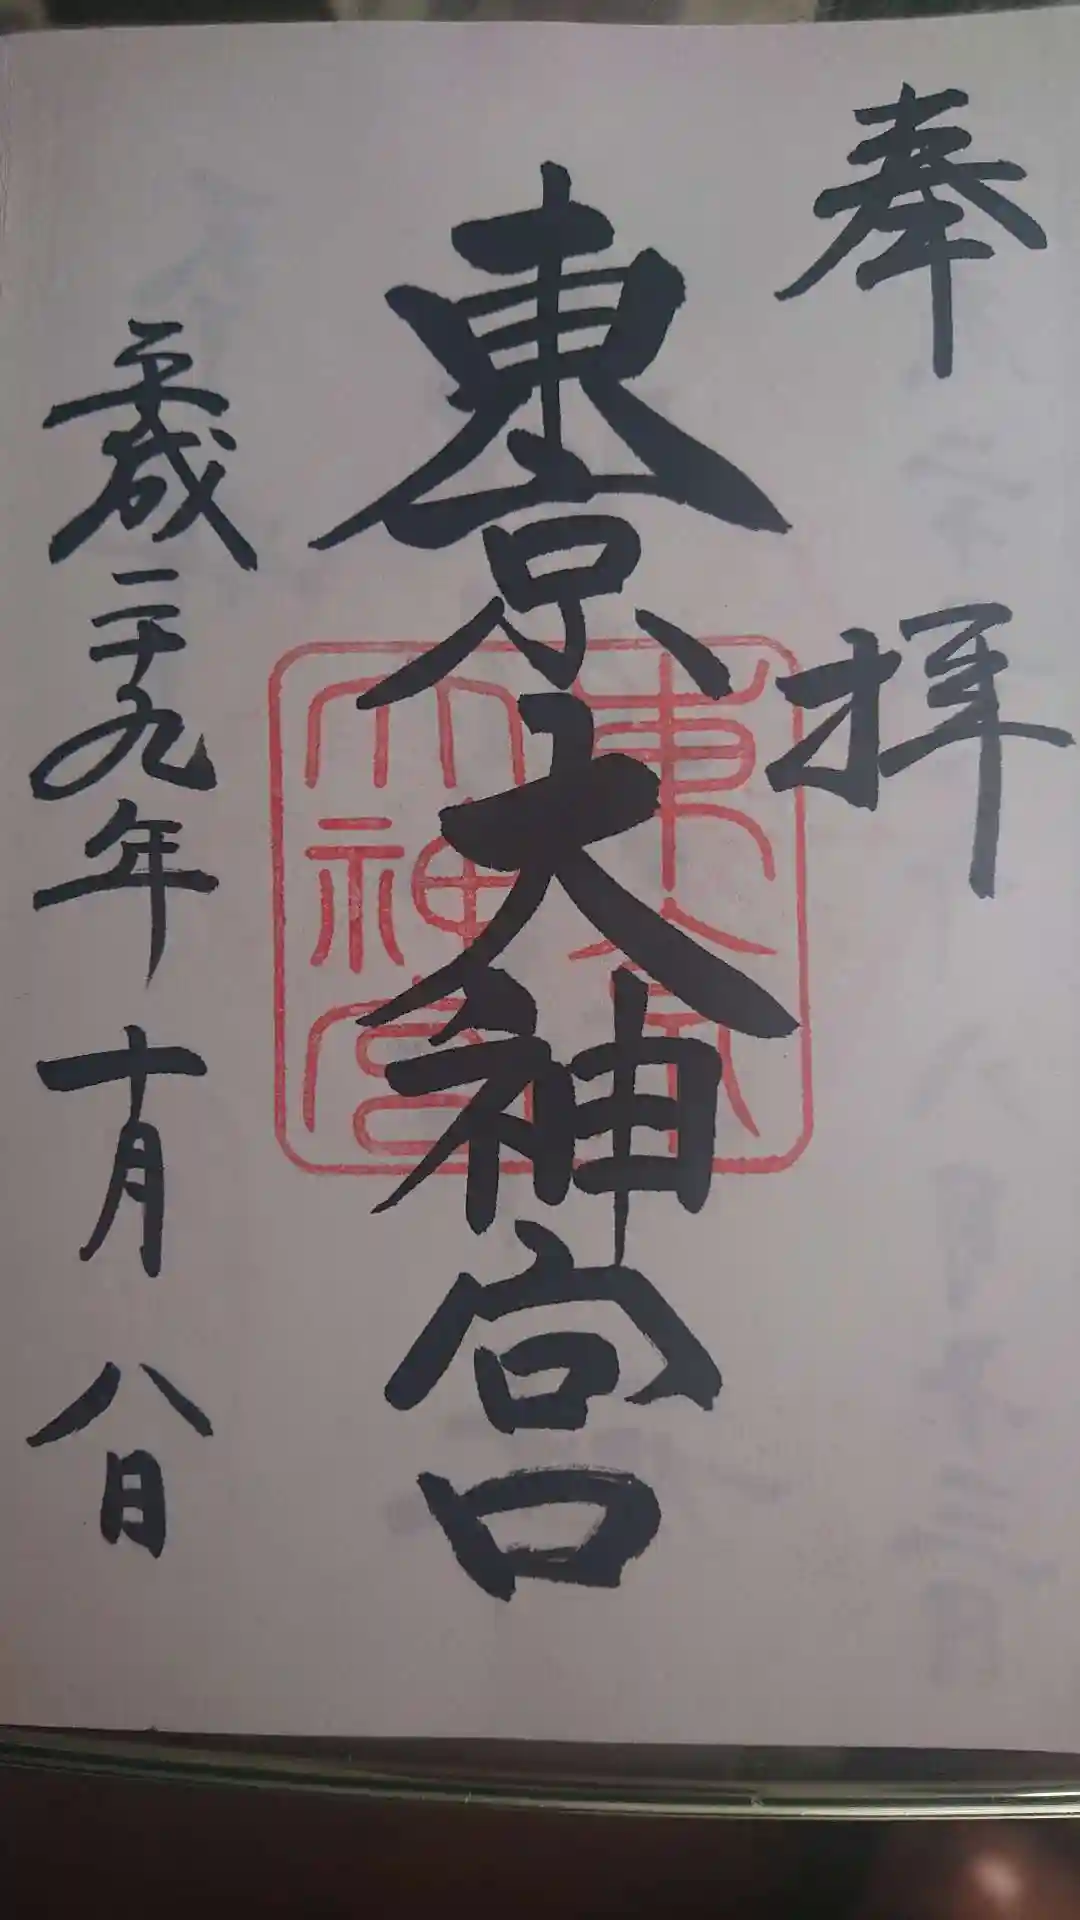 奉拝
東京大神宮
東京大神宮
平成二十九年十月八日